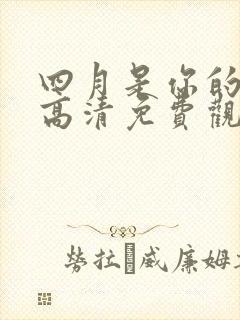 四月是你的
高清免費觀
勞拉 威廉姆